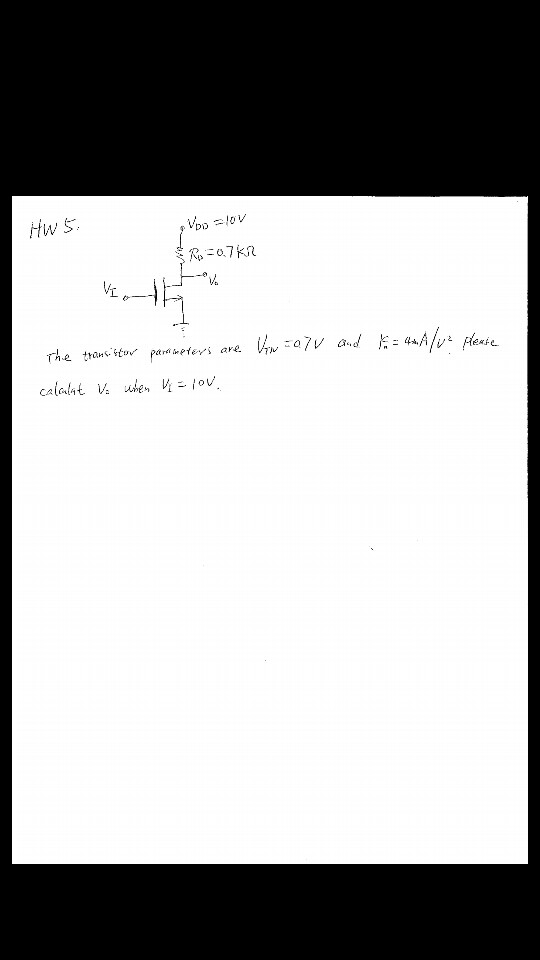 HW 5.
V_DD = 10V
R_D = 0.7 kΩ
V_o
V_I
The transistor parameters are V_TN = 0.7V and K_n = 4mA/V². Please
calculat V_o when V_I = 10V.